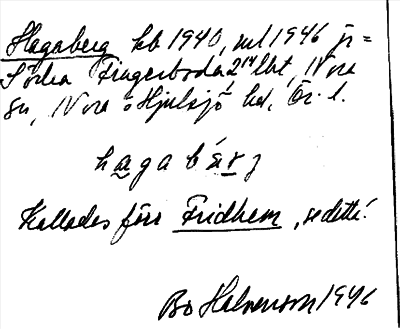 Hagaberg hb 1940, ml 1946 fr=
Södra Fingerboda 2¹⁴ lht, Nora
sn, Nora o Hjulsjö hd, Ör. l.
hagabärj
Kallades förr Fridhem, se detta!
Bo Halvarson 1946